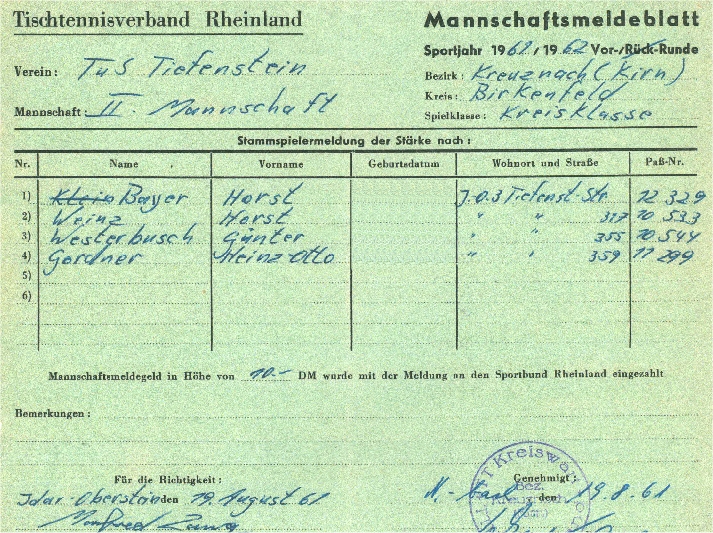 Tischtennisverband Rheinland
Mannschaftsmeldeblatt
Sportjahr 1961/1962 Vor-/Rück-Runde
Verein: TuS Tiefenstein
Bezirk: Kreuznach (Kirn)
Kreis: Birkenfeld
Mannschaft: II. Mannschaft
Spielklasse: Kreisklasse
Stammspielermeldung der Stärke nach:
Nr. Name Vorname Geburtsdatum Wohnort und Straße Paß-Nr.
1) Klein Bayer Horst J.O.3 Tiefenst. Str. 12 329
2) Weinz Horst " " 317 10 533
3) Westerbusch Günter " " 355 10 544
4) Gordner Heinz-Otto " " 359 11 299
5)
6)
Mannschaftsmeldegeld in Höhe von 10.- DM wurde mit der Meldung an den Sportbund Rheinland eingezahlt
Bemerkungen:
Für die Richtigkeit:
Genehmigt:
Idar-Oberstein den 19. August 61
den 19.8.61
Kreiswa
Bez.
Manfred